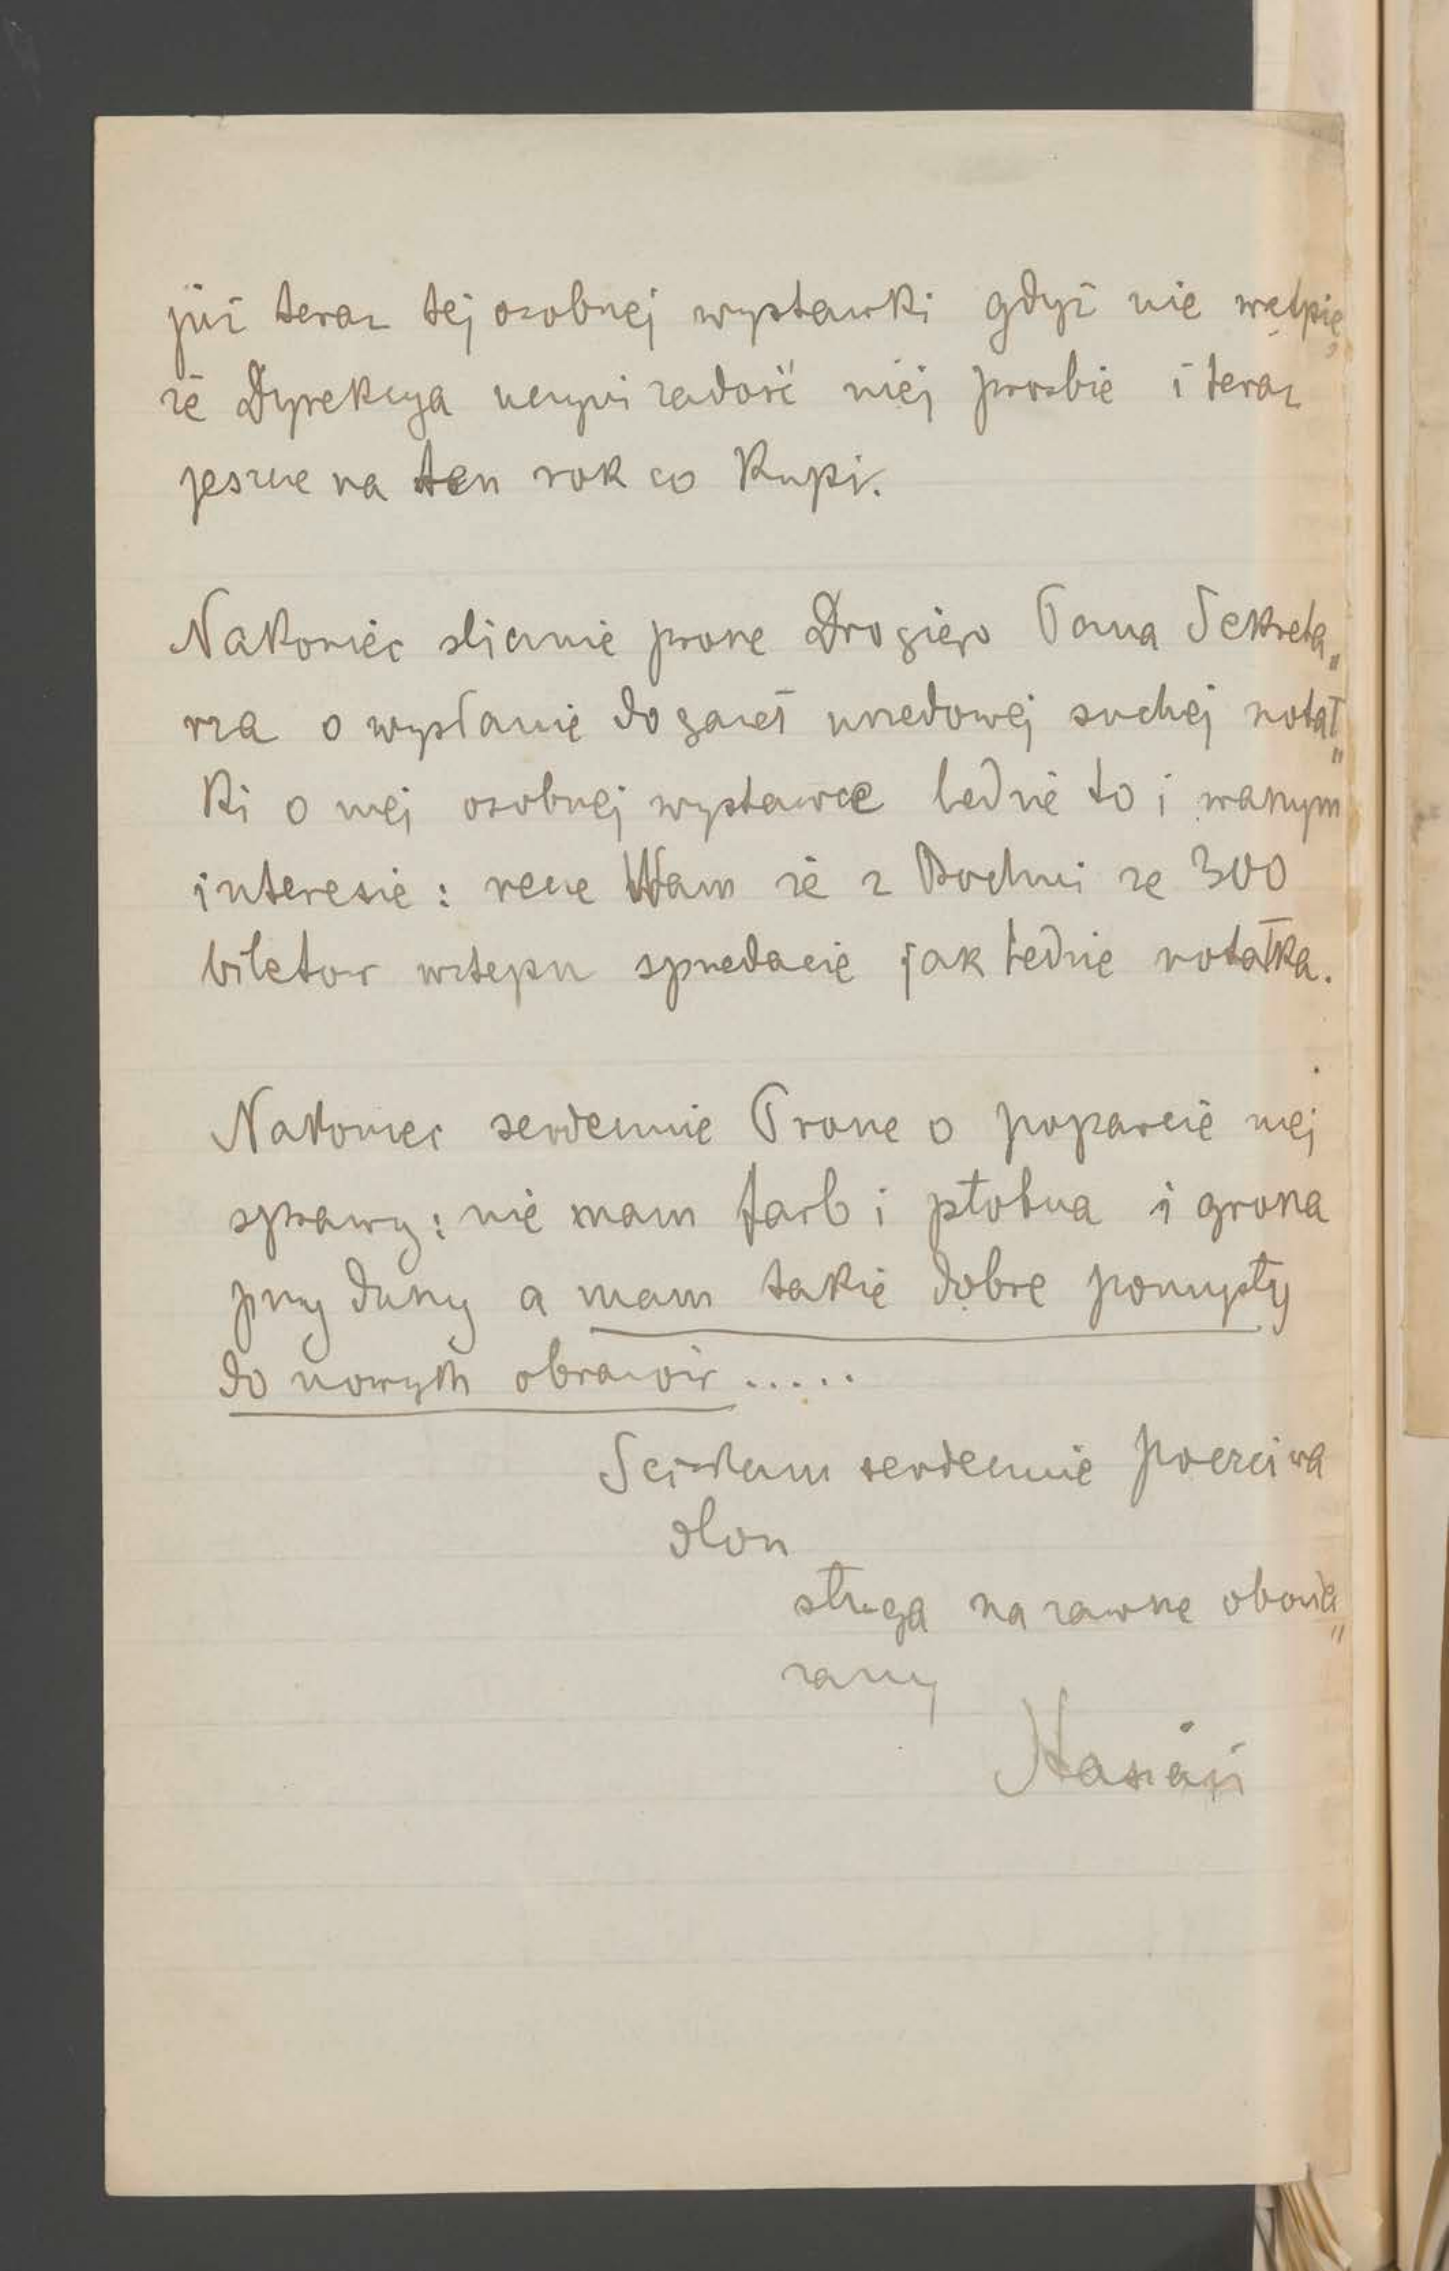 już teraz tej osobnej wystawki gdyż nie wątpię
że Dyrekcya uczyni zadość mej prośbie i teraz
jeszcze na ten rok co kupi.
Nakoniec ślicznie proszę Drogiego Pana Sekreta„
rza o wysłanie do gazet urzędowej suchej notat„
ki o mej osobnej wystawce będzie to i waszym
interesie: ręczę Wam że z Bochni ze 300
biletów wstępu sprzedacie jak będzie notatka.
Nakoniec serdecznie Proszę o poparcie mej
sprawy: nie mam farb i płótna i grosza
przy duszy a mam takie dobre pomysły
do nowych obrazów.....
Sciskam serdecznie poczciwa
dłoń
sługa na zawsze obowią„
zany
Stasiak